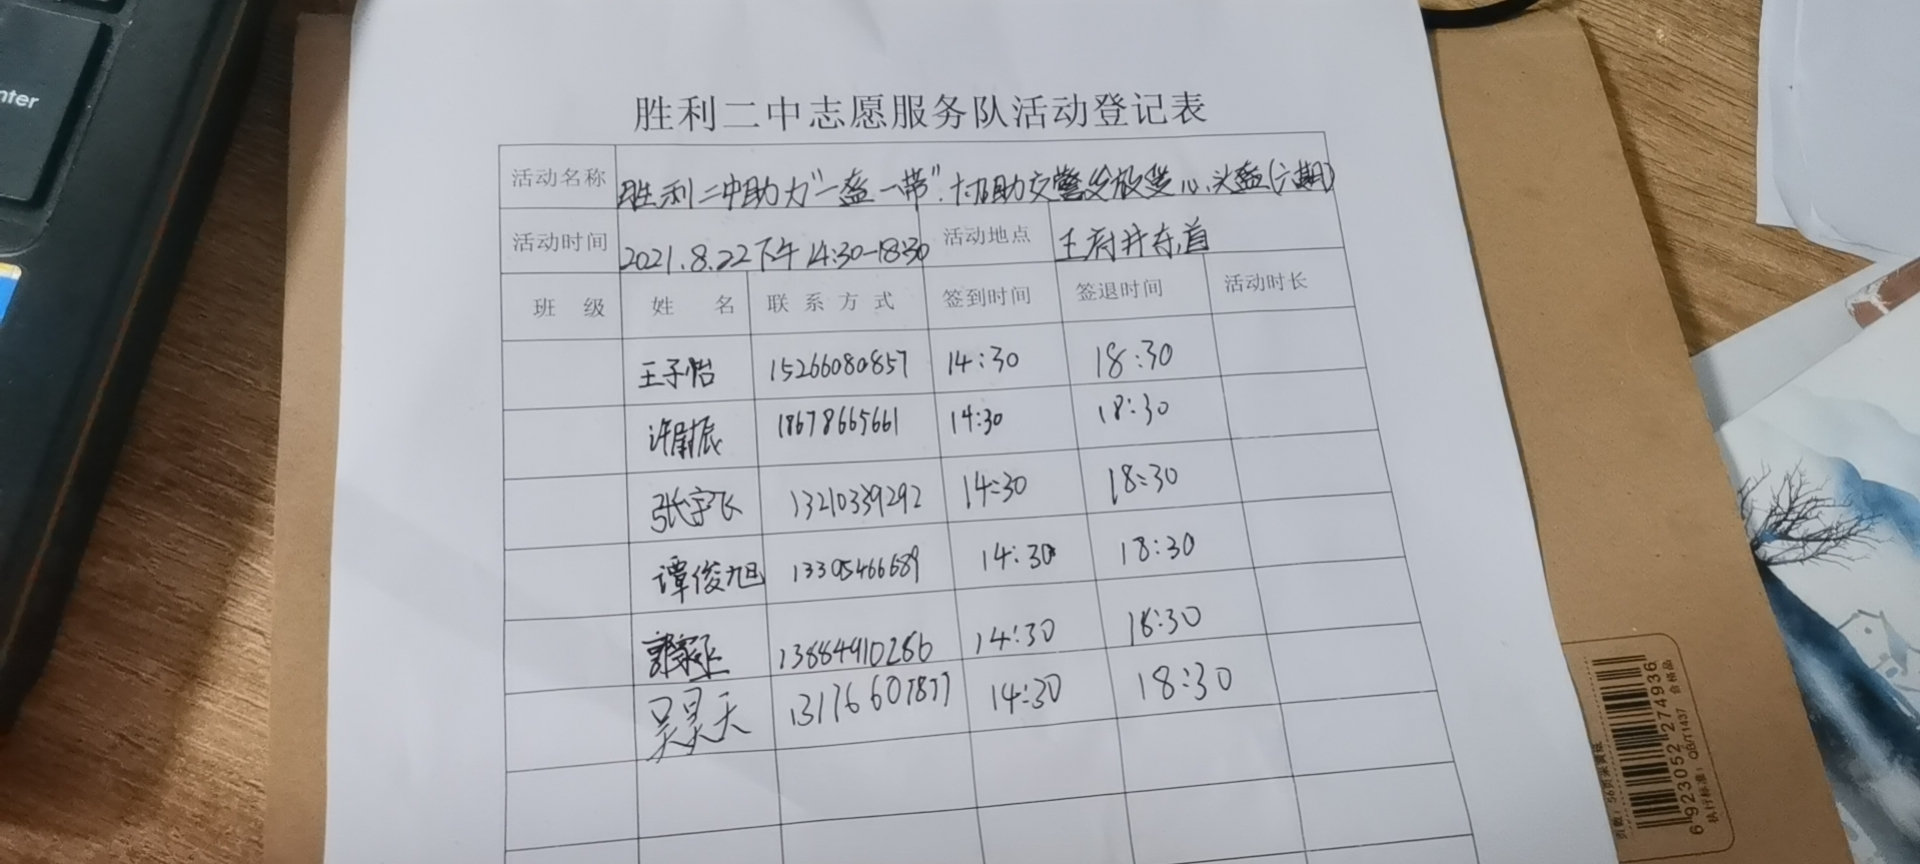 nter
胜利二中志愿服务队活动登记表
活动名称 胜利二中助力"一盔一带".协助交警发放安心头盔(六期)
活动时间 2021.8.22下午14:30-18:30 活动地点 王府井东首
班 级 姓 名 联系方式 签到时间 签退时间 活动时长
王子怡 15266080857 14:30 18:30
许尉辰 18678665661 14:30 18:30
张宇飞 13210339292 14:30 18:30
谭俊旭 13305466689 14:30 18:30
13884910286 14:30 18:30
吴昊天 13176607877 14:30 18:30
6 923052 274936
执行标准：QB/T1437 合格品